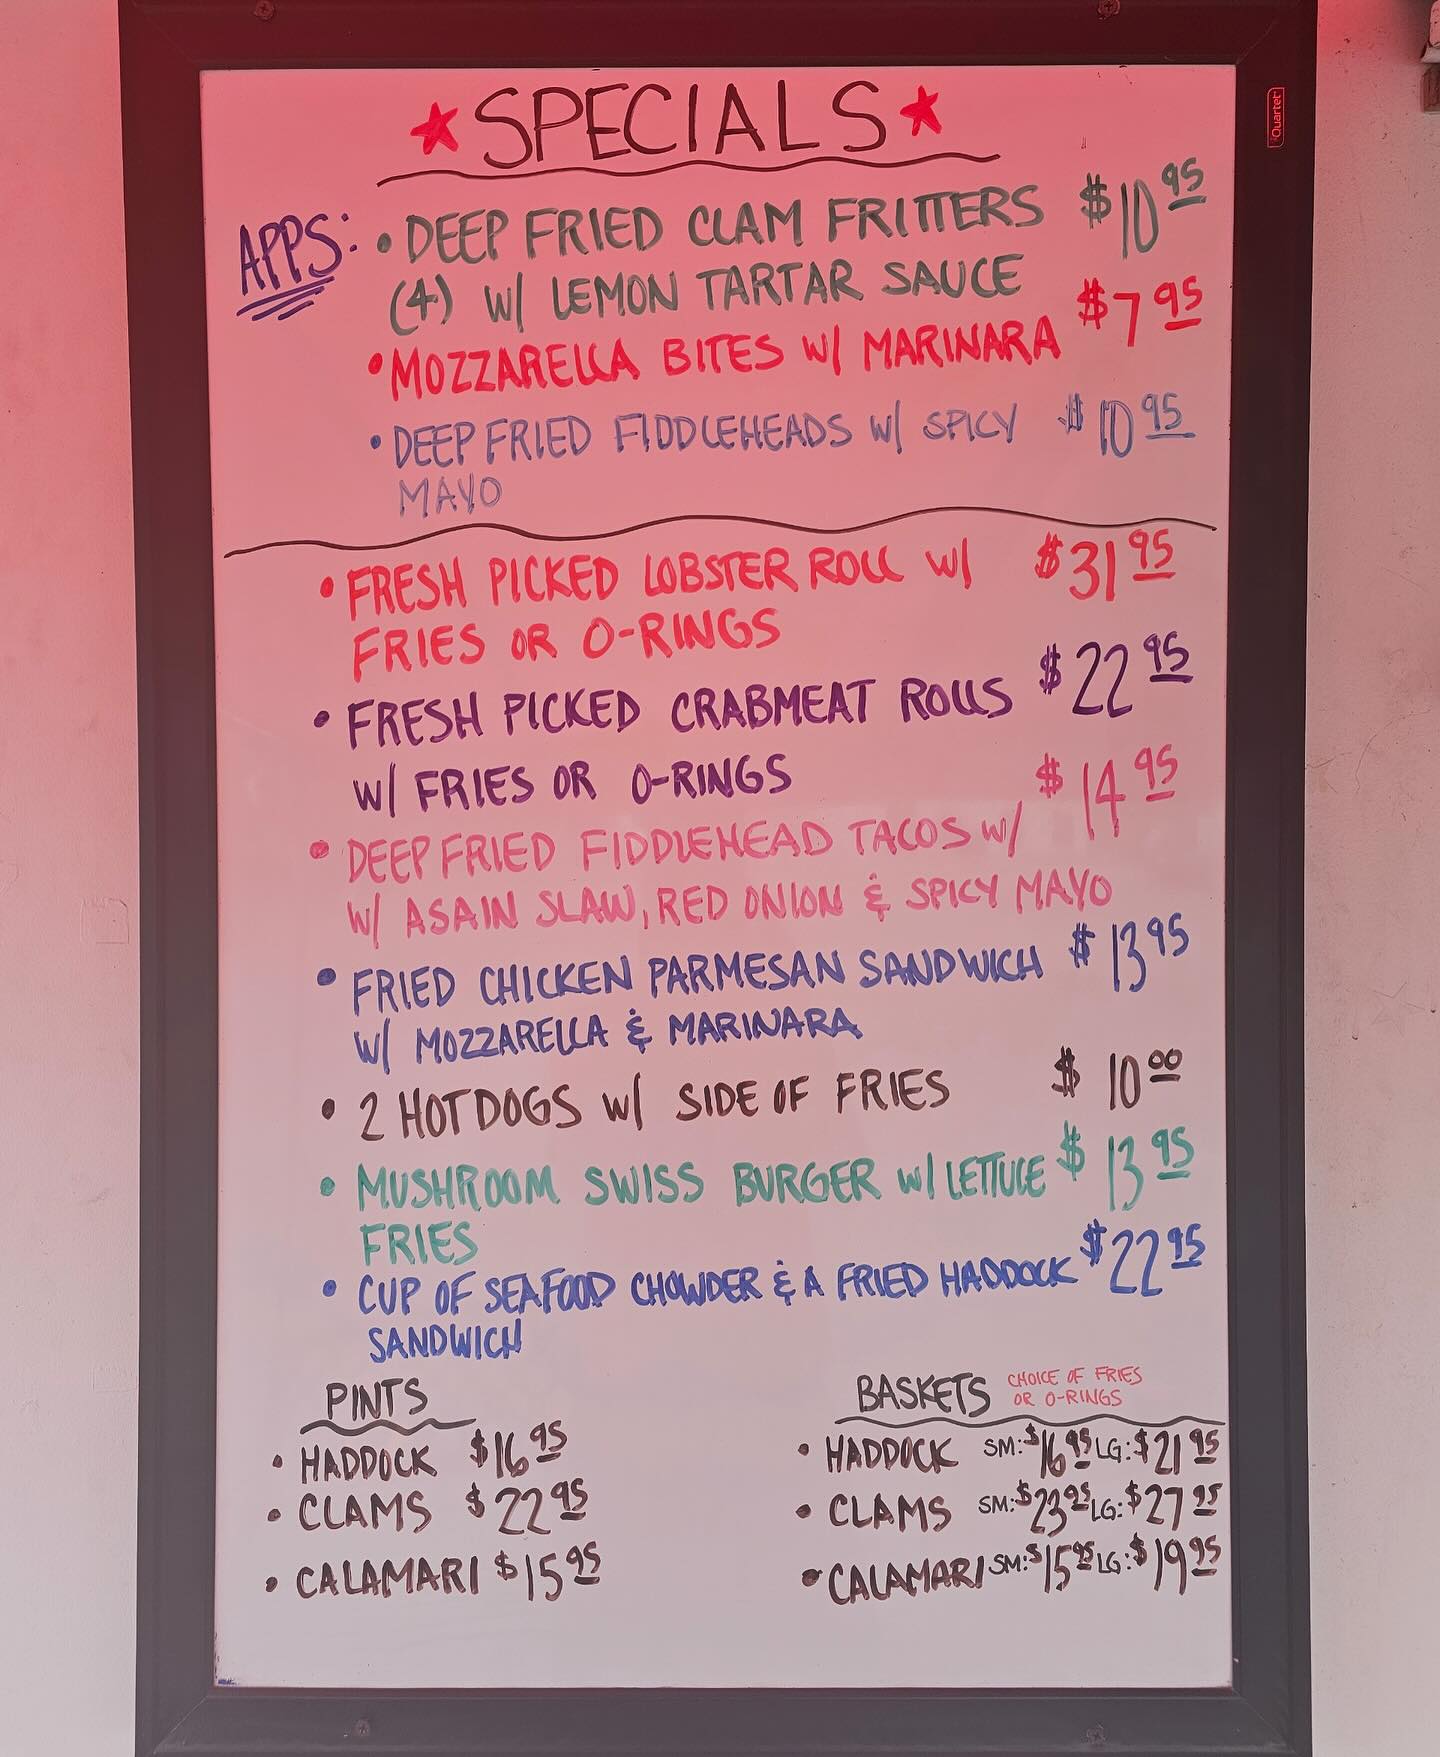 ★ SPECIALS ★
APPS: • DEEP FRIED CLAM FRITTERS $10.95
(4) W/ LEMON TARTAR SAUCE
• MOZZARELLA BITES W/ MARINARA $7.95
• DEEP FRIED FIDDLEHEADS W/ SPICY $10.95
MAYO
• FRESH PICKED LOBSTER ROLL W/ $31.95
FRIES OR O-RINGS
• FRESH PICKED CRABMEAT ROLLS $22.95
W/ FRIES OR O-RINGS
• DEEP FRIED FIDDLEHEAD TACOS W/ $14.95
W/ ASAIN SLAW, RED ONION & SPICY MAYO
• FRIED CHICKEN PARMESAN SANDWICH $13.95
W/ MOZZARELLA & MARINARA
• 2 HOT DOGS W/ SIDE OF FRIES $10.00
• MUSHROOM SWISS BURGER W/ LETTUCE $13.95
FRIES
• CUP OF SEAFOOD CHOWDER & A FRIED HADDOCK $22.95
SANDWICH
PINTS
• HADDOCK $16.95
• CLAMS $22.95
• CALAMARI $15.95
BASKETS CHOICE OF FRIES
OR O-RINGS
• HADDOCK SM: $16.95 LG: $21.95
• CLAMS SM: $23.95 LG: $27.95
• CALAMARI SM: $15.95 LG: $19.95
Quartet